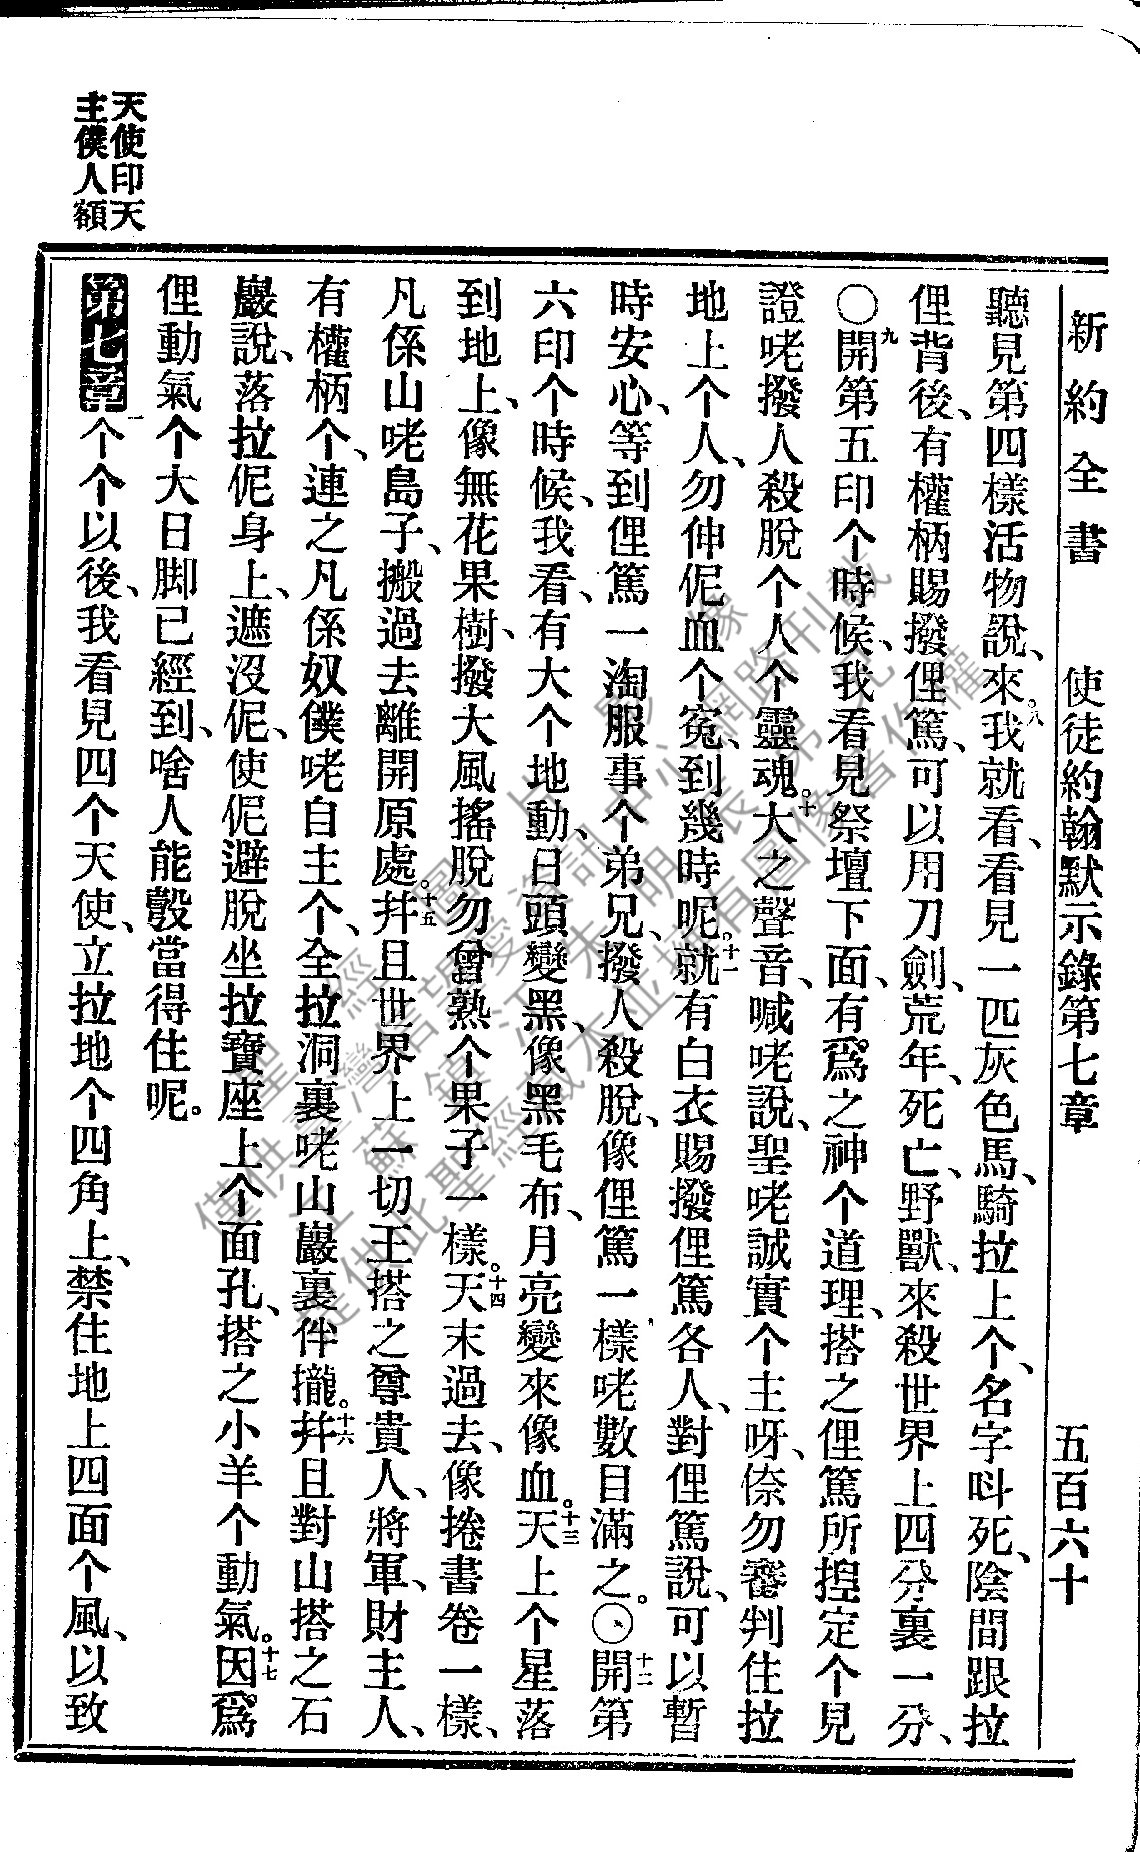 新約全書　使徒約翰默示錄第七章　五百六十
聽見第四樣活物說、來。八我就看、看見一匹灰色馬、騎拉上个、名字呌死、陰間跟拉
俚背後、有權柄賜撥俚篤、可以用刀劍、荒年、死亡、野獸、來殺世界上四分裏一分、
〇九開第五印个時候、我看見祭壇下面、有爲之神个道理、搭之俚篤所揑定个見
證咾撥人殺脫个人个靈魂。十大之聲音、喊咾說、聖咾誠實个主呀、倷勿審判住拉
地上个人、勿伸伲血个寃、到幾時呢。十一就有白衣賜撥俚篤各人、對俚篤說、可以暫
時安心、等到俚篤一淘服事个弟兄、撥人殺脫、像俚篤一樣咾數目滿之。〇十二開第
六印个時候、我看、有大个地動、日頭變黑、像黑毛布、月亮變來像血。十三天上个星落
到地上、像無花果樹、撥大風搖脫勿曾熟个果子一樣。十四天末過去、像捲書卷一樣、
凡係山咾島子、搬過去離開原處。十五幷且世界上一切王搭之尊貴人、將軍、財主人、
有權柄个、連之凡係奴僕咾自主个、全拉洞裏咾山巖裏伴攏。十六幷且對山搭之石
巖說、落拉伲身上、遮沒伲、使伲避脫坐拉寶座上个面孔、搭之小羊个動氣。十七因爲
俚動氣个大日脚已經到、啥人能彀當得住呢。
第七章一个个以後、我看見四个天使、立拉地个四角上、禁住地上四面个風、以致
天使印天
主僕人額